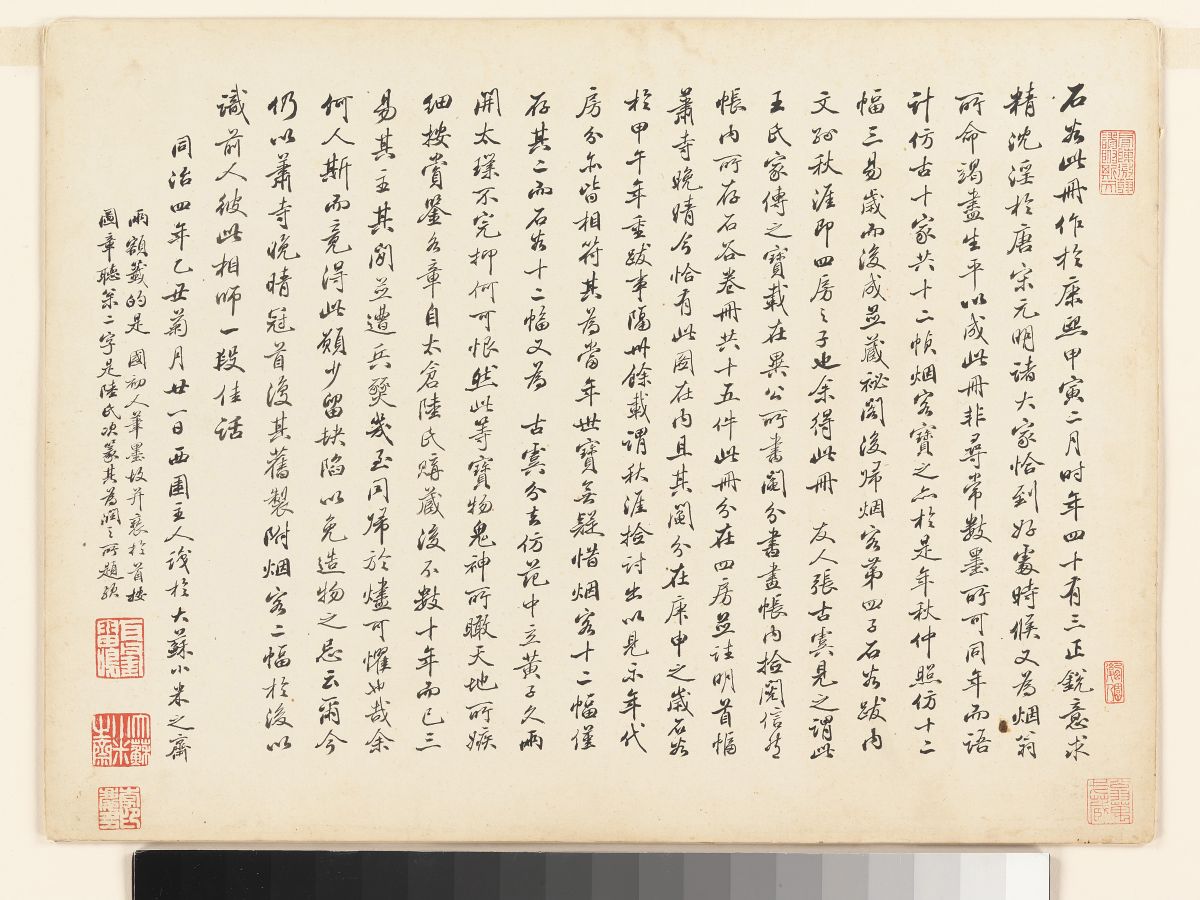 石谷此冊作於康熙甲寅二月时年四十有三正銳意求
精沈淫於唐宋元明諸大家恰到好處時候又為烟翁
所命竭盡生平以成此冊非尋常數墨所可同年而語
计仿古十家共十二幀烟客寶之亦於是年秋仲照仿十二
幅三易歲而後成並藏祕閣後归烟客第四子石谷跋内
文孫秋涯即四房之子也余得此冊 友人張古雲見之謂此
王氏家傳之寶載在異公所書鬮分書畫帳内拾閱信然
帳内所存石谷卷冊共十五件此冊分在四房並註明首幅
蕭寺晚晴今恰有此圖在内且其鬮分在庚申之歲石谷
於甲午年重跋事隔卅餘載謂秋涯拾討出以見示年代
房分亦皆相符其為當年世寶無疑惜烟客十二幅僅
存其二而石谷十二幅又為 古雲分去仿范中立黄子久兩
開太璞不完抑何可恨然此等寶物鬼神所瞰天地所嫉
細按賞鑒各章自太倉陸氏購藏後不數十年而已三
易其主其閒並遭兵燹幾至同歸於燼可懼也哉余
何人斯而竟得此願少留缺陷以免造物之忌云爾今
仍以蕭寺晚晴冠首復其舊製附烟客二幅於後以
識前人彼此相师一段佳话
同治四年乙丑菊月廿一日西圃主人識於大蘇小米之齋
兩額籤的是 國初人筆墨故并裝於首按
圖章聽松二字是陸氏次篆其為潤之所題欤